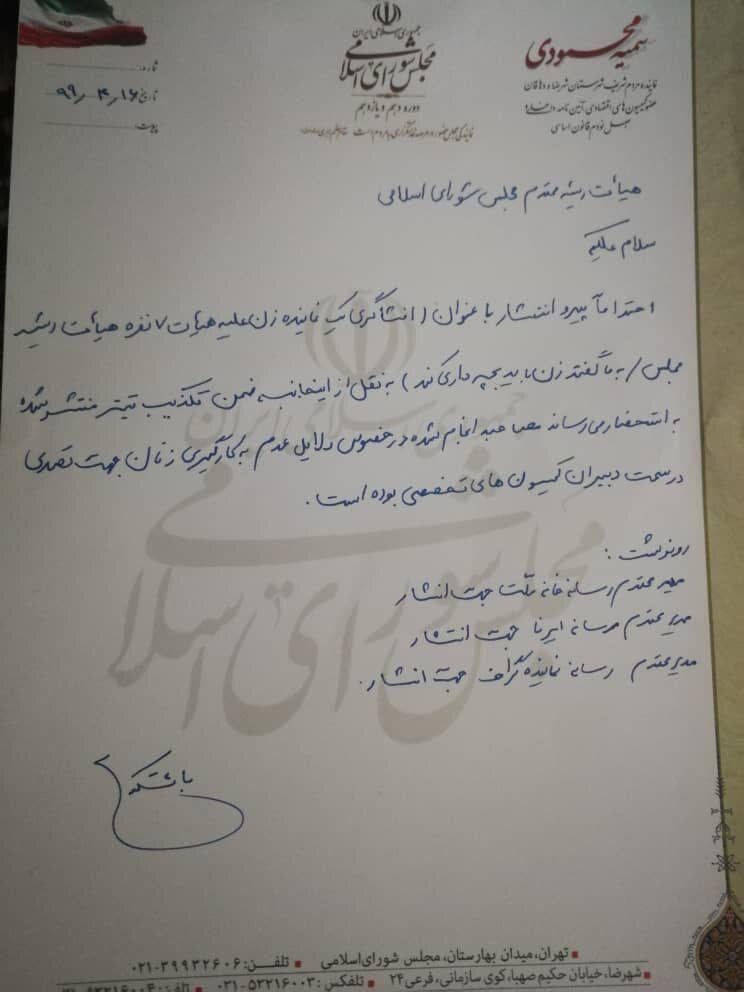 جمهوری اسلامی ایران
مجلس شورای اسلامی
دوره دهم و یازدهم
سمیه محمودی
نماینده مردم شریف شهرستان شهرضا و دهاقان
عضو کمیسیون های اقتصادی، آیین نامه داخلی و
اصل نودم قانون اساسی
شماره:
تاریخ: ۹۹٫۴٫۱۶
پیوست:
هیأت رئیسه محترم مجلس شورای اسلامی
سلام علیکم
احتراماً پیرو انتشار با عنوان (افشاگری یک نماینده زن علیه هیأت ۷ نفره هیأت رئیسه
مجلس / به ما گفتند زن باید بچه داری کند) به نقل از اینجانب ضمن تکذیب تیتر منتشر شده
به استحضار می رساند مصاحبه انجام شده در خصوص دلایل عدم به کارگیری زنان جهت تصدی
در سمت دبیران کمیسیون های تخصصی بوده است.
رونوشت:
مدیر محترم رسانه خانه ملت جهت انتشار
مدیر محترم رسانه ایرنا جهت انتشار
مدیر محترم رسانه نماینده گراف جهت انتشار.
با تشکر
تهران، میدان بهارستان، مجلس شورای اسلامی ▪ تلفن: ۰۲۱-۳۹۹۳۲۶۰۶
شهرضا، خیابان حکیم صهبا، کوی سازمانی، فرعی ۲۴ ▪ تلفکس: ۰۳۱-۵۳۲۱۶۰۰۳ ▪ تلفن: